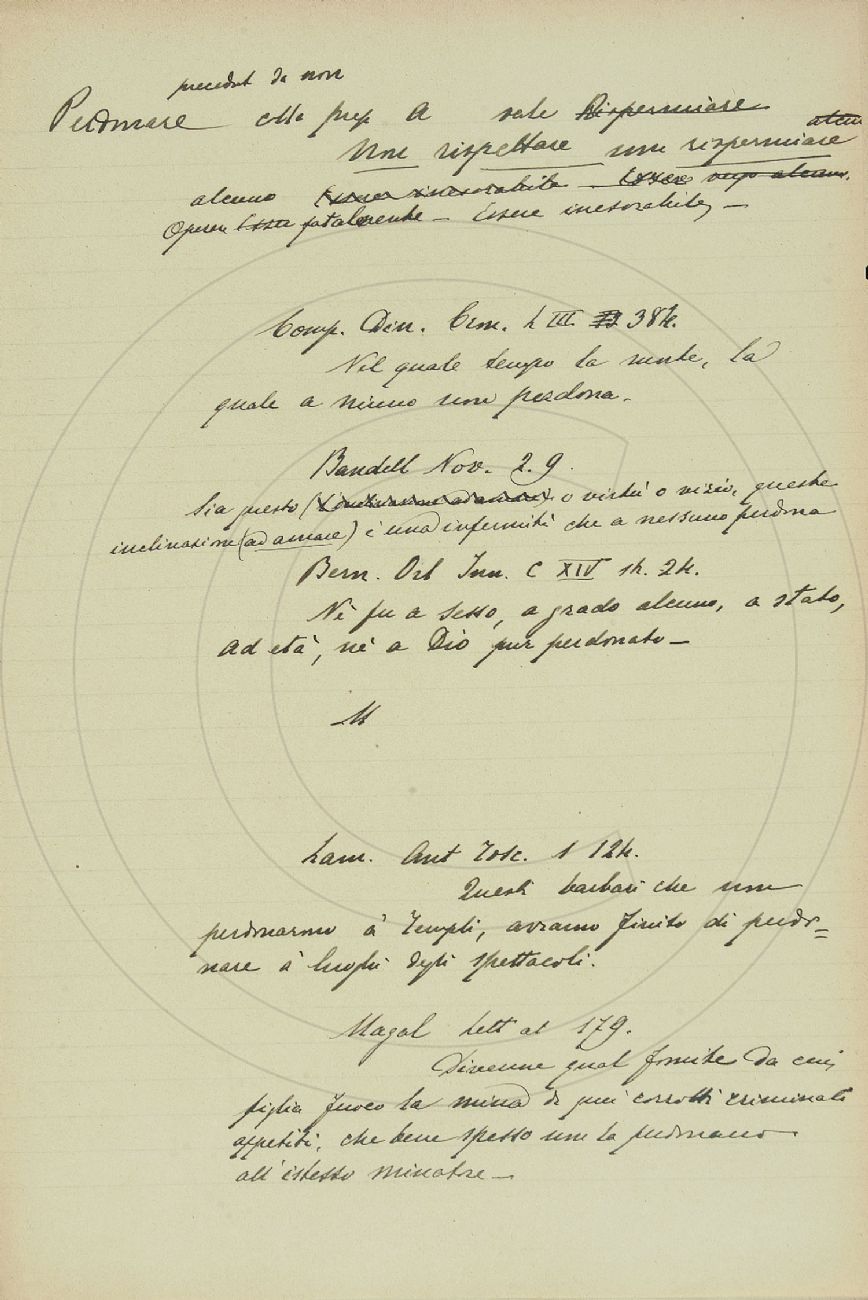 precedut da non
Perdonare colla prep A vale Risparmiare
alcuno
Non rispettare non risparmiare
alcuno Essere inesorabile Essere verso alcuno.
Operare fatalmente – Essere inesorabile, –
Comp. Din. Crn. L III. 384.
Nel quale tempo la morte, la
quale a niuno non perdona.
Bandell Nov. 2. 9.
Sia questo o virtù o vizio, queste
inclinazioni (ad amare) è una infermità che a nessuno perdona
Bern. Orl Inn. C XIV st. 24.
Nè fu a sesso, a grado alcuno, a stato,
ad età, nè a Dio pur perdonato –
M
Lam. Ant Tosc. 1 124.
Questi barbari che non
perdonarono a' Templi, avranno finito di perdo=
nare a' luoghi degli spettacoli.
Magal Lett at 179.
Divenne qual fomite da cui
piglia fuoco la mina di quei corrotti criminali
appetiti, che bene spesso non la perdonano
all'istesso minatore –